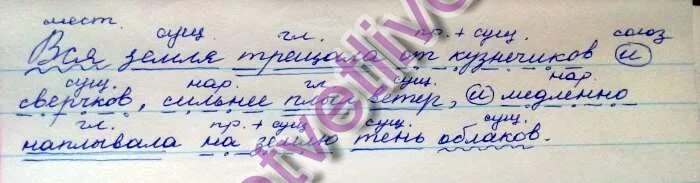 мест. сущ. гл. пр. + сущ. союз
Вся земля трещала от кузнечиков и
сущ. нар. гл. сущ. нар.
сверчков, сильнее плыл ветер, и медленно
гл. пр. + сущ. сущ. сущ.
наплывала на землю тень облаков.